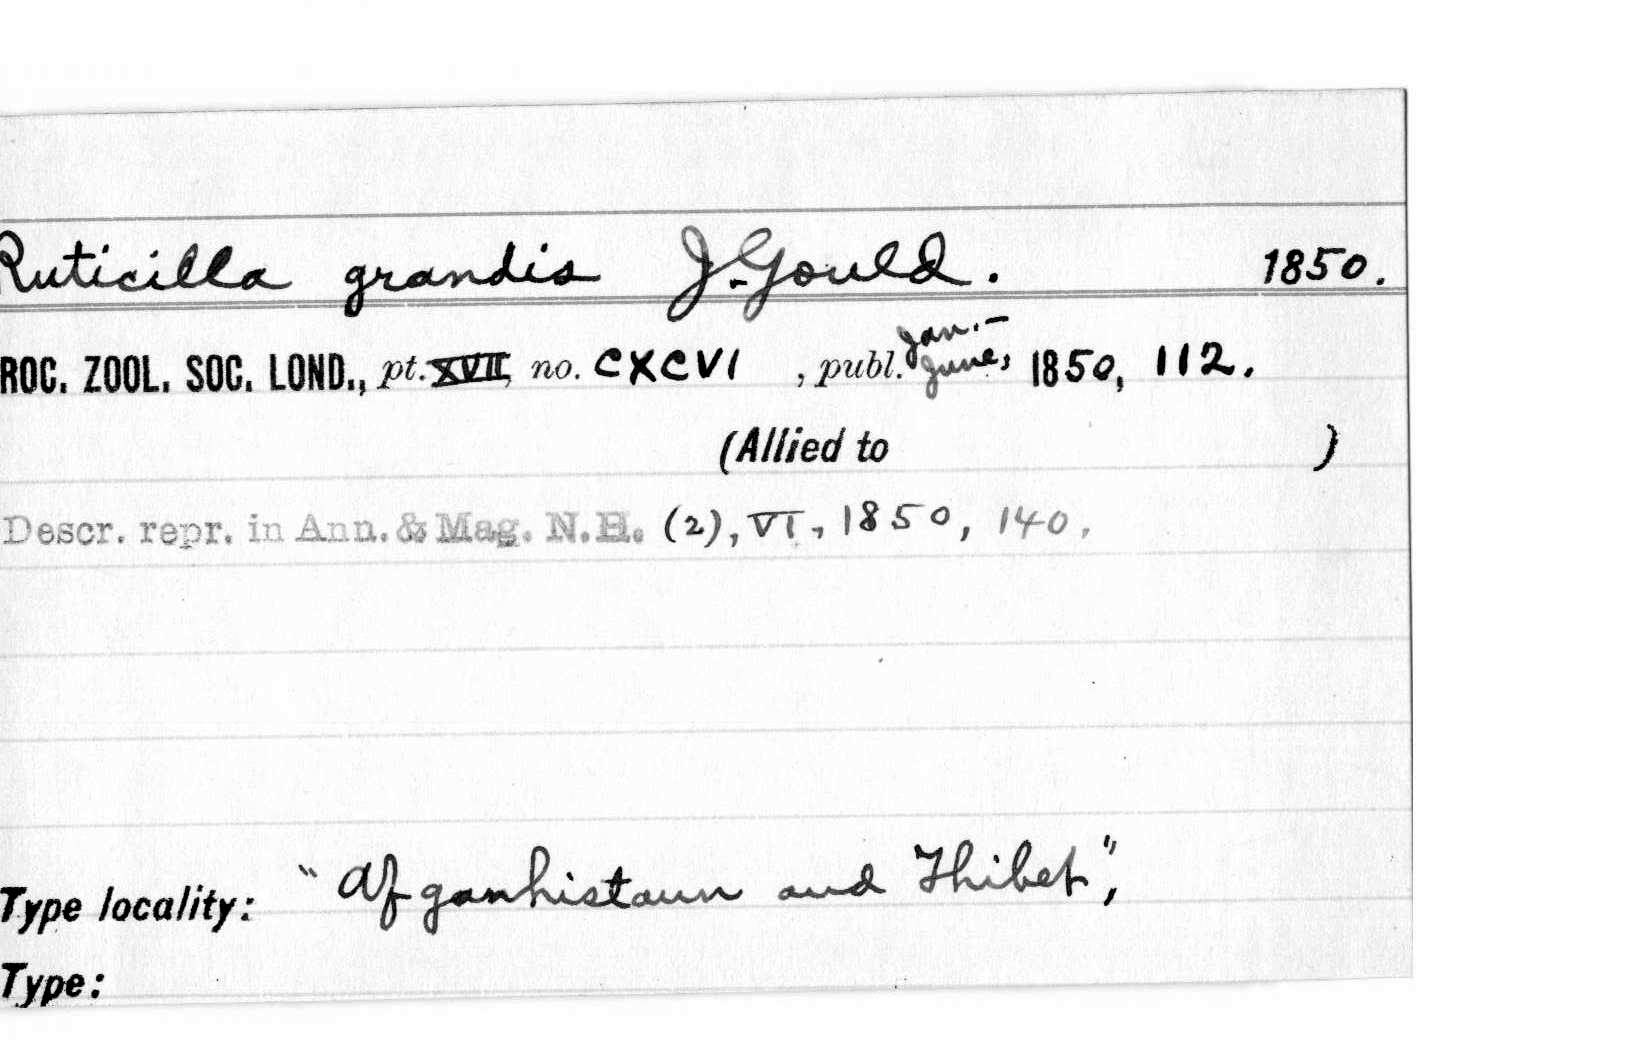 Ruticilla grandis J. Gould. 1850.
ROC. ZOOL. SOC. LOND., pt. XVII, no. CXCVI , publ. Jan.- June, 1850, 112.
(Allied to )
Descr. repr. in Ann. & Mag. N.H. (2), VI, 1850, 140.
Type locality: "Afganhistaun and Thibet",
Type: